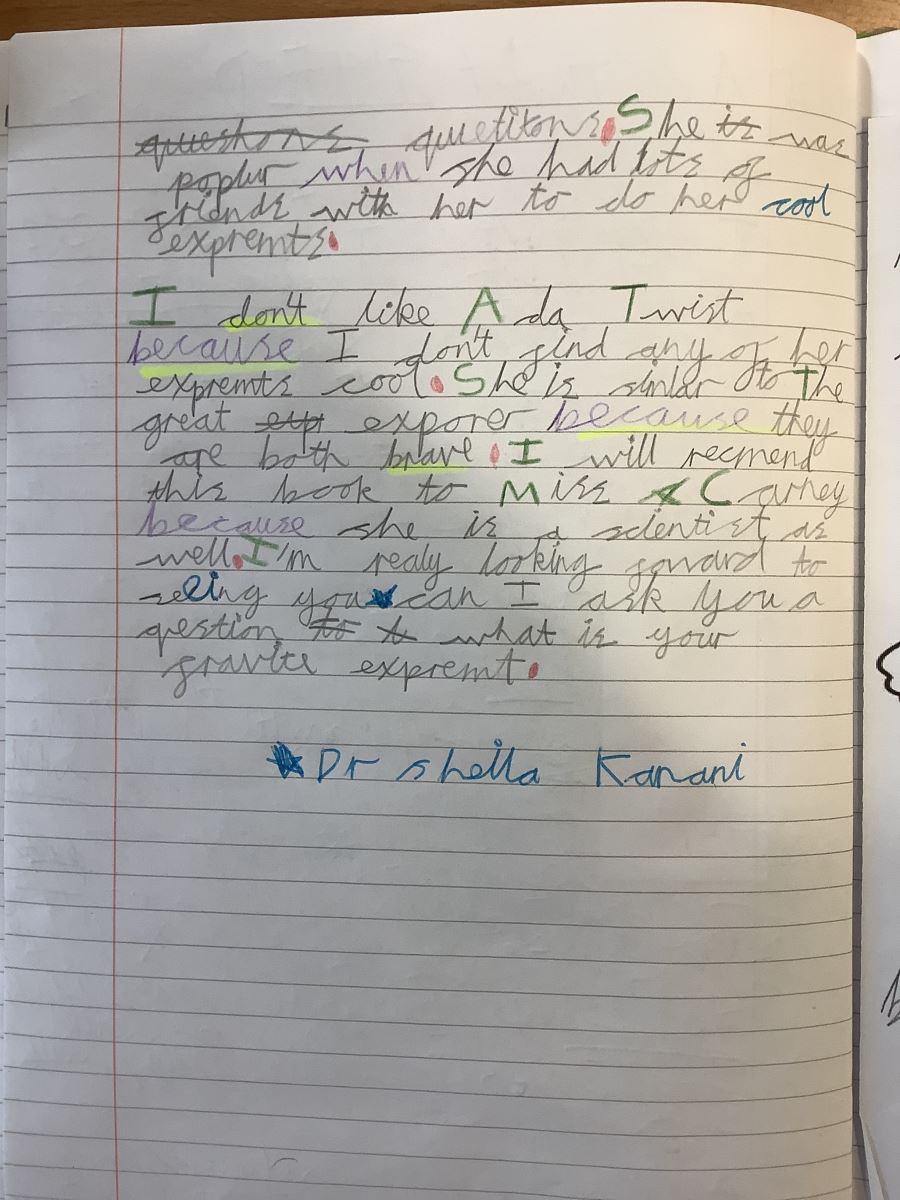 questions quetitons. She is was
poplur when she had lots of
friends with her to do her cool
expremts.
I don't like Ada Twist
because I don't find any of her
expremts cool. She is simlar to The
great exp exporer because they
are both brave. I will recmend
this book to Miss Carney
because she is a scientist as
well. I'm realy looking forward to
seeing you can I ask you a
qestion to t what is your
fravite expremt.
Dr sheila Kanani